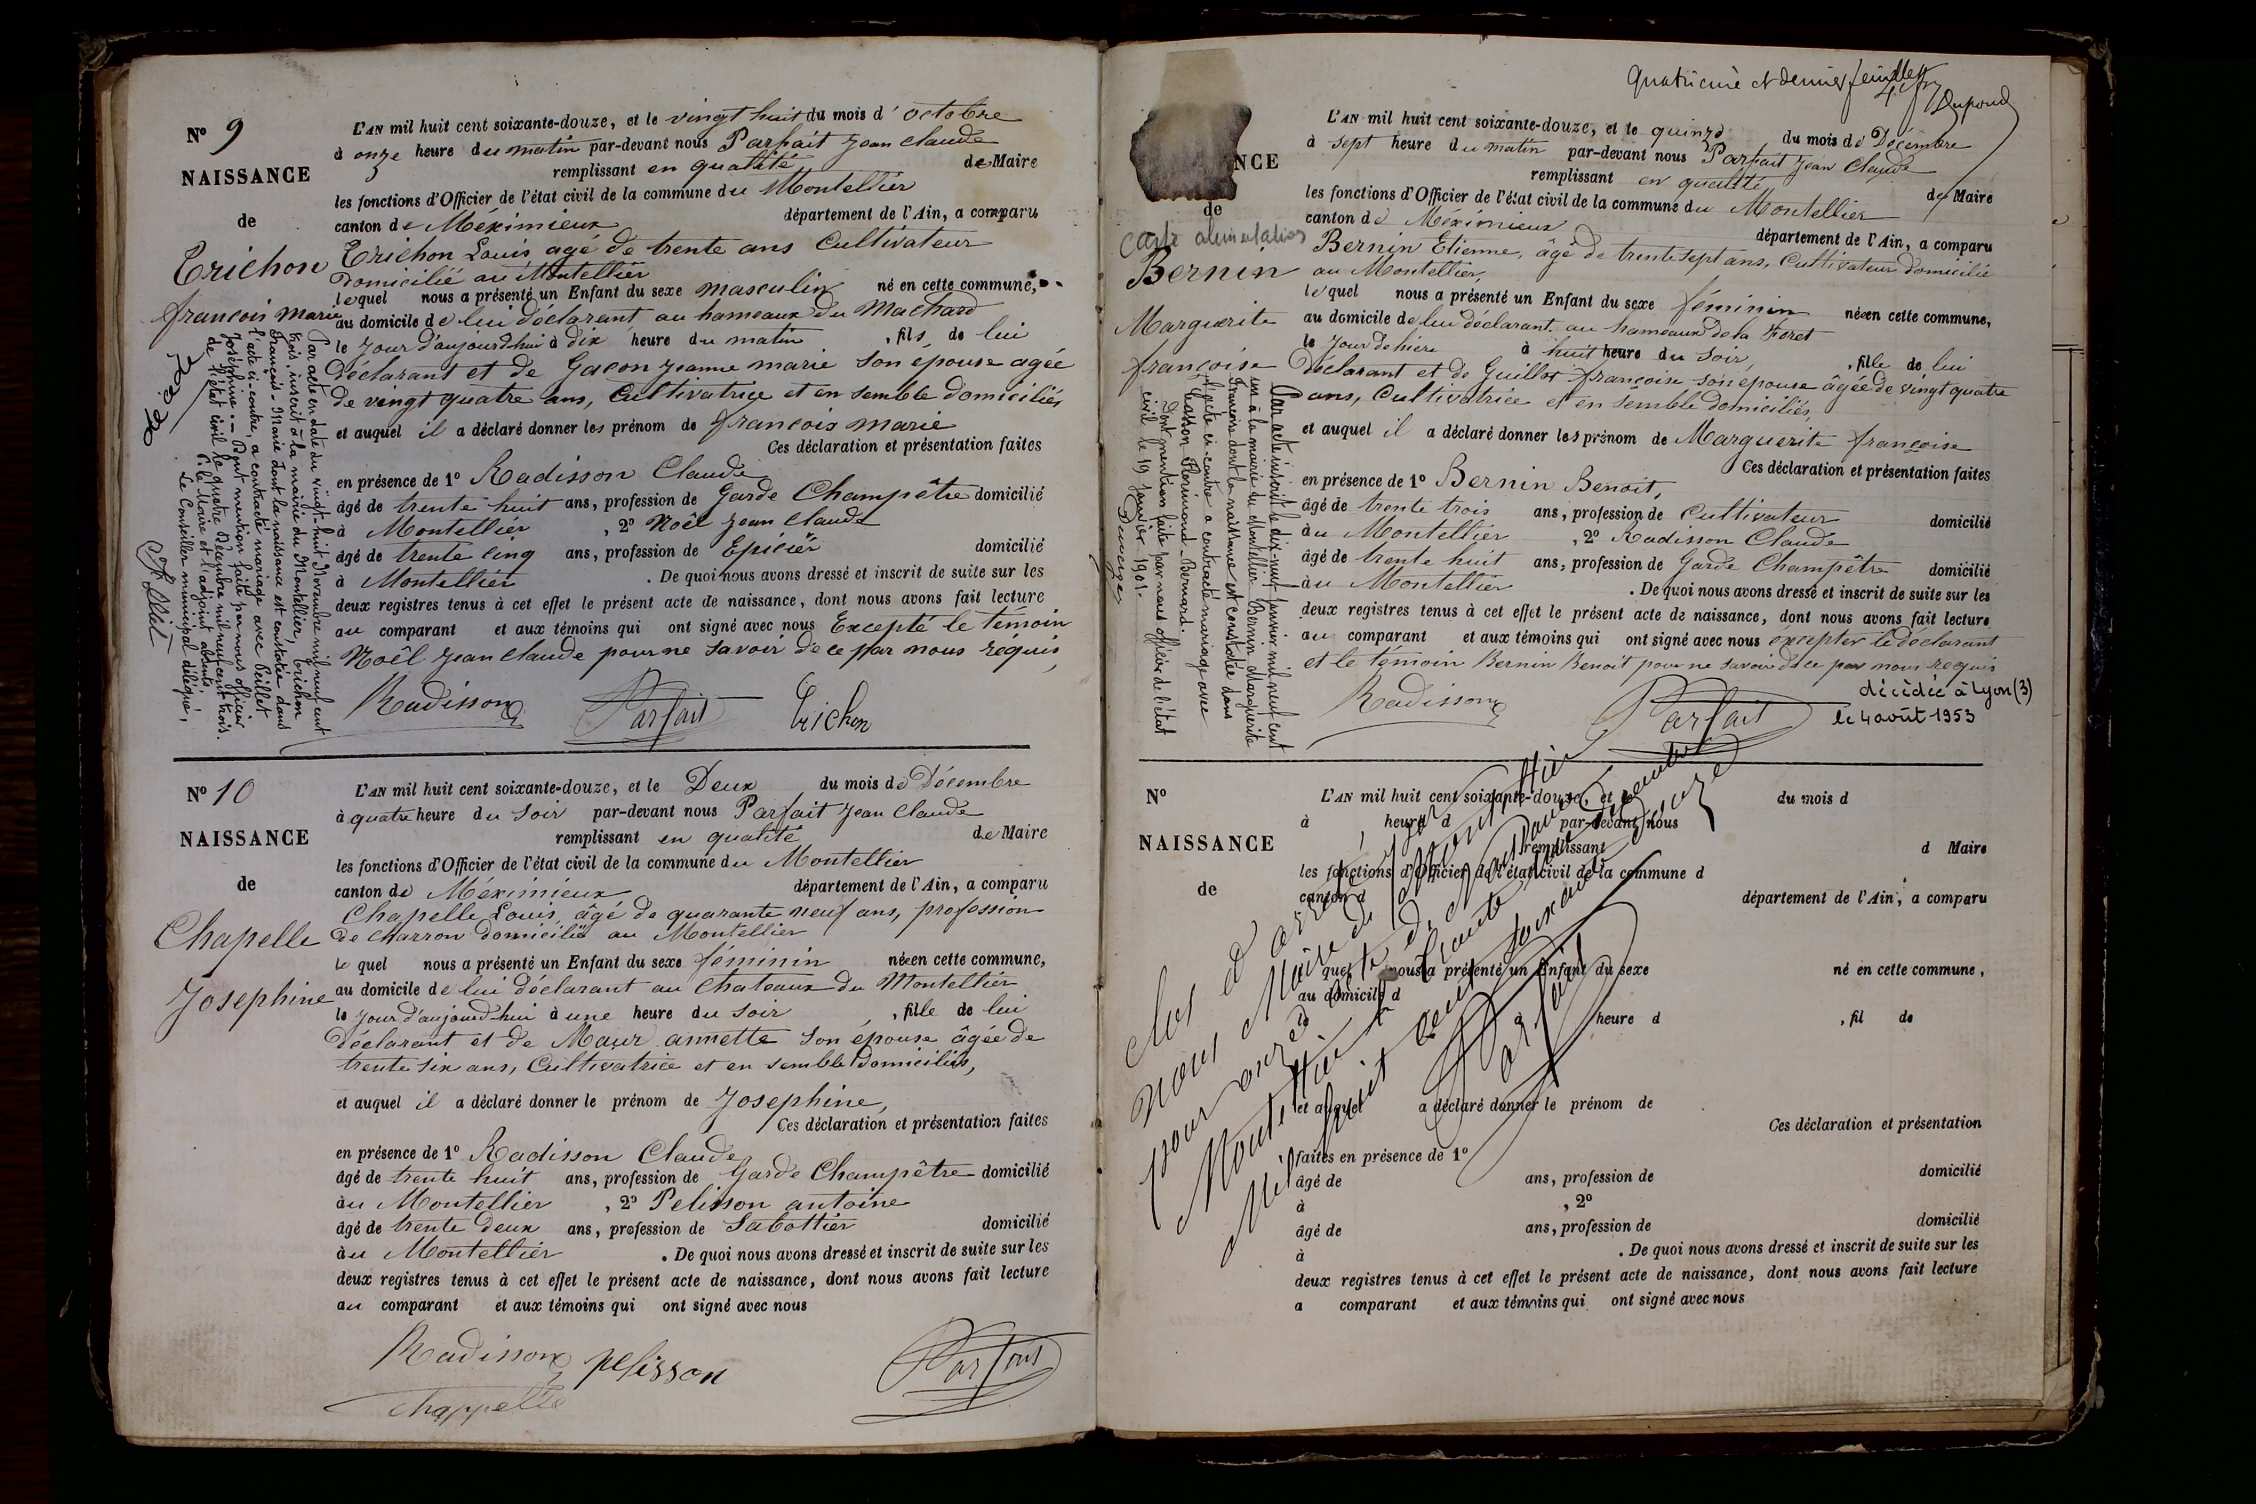 N° 9
NAISSANCE
de
Trichon
françois marie
L'AN mil huit cent soixante-douze, et le vingt huit du mois d'octobre
à onze heure du matin par-devant nous Parfait Jean Claude
remplissant en qualité de Maire
les fonctions d'Officier de l'état civil de la commune du Montellier
canton de Méximieux département de l'Ain, a comparu
Trichon Louis agé de trente ans Cultivateur
Domicilié au Montellier
lequel nous a présenté un Enfant du sexe masculin né en cette commune,
au domicile de lui déclarant au hameaux du Machard
le jour d'aujourd'hui à dix heure du matin , fils de lui
Déclarant et de Gacon jeanne marie son épouse agée
de vengt quatre ans, Cultivatrice et en semble domiciliés
et auquel il a déclaré donner les prénom de françois marie
Ces déclaration et présentation faites
en présence de 1° Radisson Claude
âgé de trente huit ans, profession de Garde Champêtre domicilié
à Montellier , 2° Noêl Jean Claude
âgé de trente cinq ans, profession de Epicier domicilié
à Montellier . De quoi nous avons dressé et inscrit de suite sur les
deux registres tenus à cet effet le présent acte de naissance, dont nous avons fait lecture
au comparant et aux témoins qui ont signé avec nous Excepté le témoin
Noêl Jean Claude pour ne savoir de ce par nous réquis
Radisson Parfait Trichon
Par acte en date du vingt-huit Novembre mil neuf cent
trois, inscrit à la mairie du Montellier, Trichon
François-Marie dont la naissance est constatée dans
l'acte ci-contre, a contracté mariage avec Peillet
Joséphine. - Dont mention faite par nous officier
de l'état civil le quatre Décembre mil neuf cent trois.
P. le Maire et l'adjoint absents,
Le Conseiller municipal délégué,
décédé
N° 10
NAISSANCE
de
Chapelle
Josephine
L'AN mil huit cent soixante-douze, et le Deux du mois de Décembre
à quatre heure du soir par-devant nous Parfait Jean Claude
remplissant en qualité de Maire
les fonctions d'Officier de l'état civil de la commune du Montellier
canton de Méximieux département de l'Ain, a comparu
Chapelle Louis, âgé de quarante neuf ans, profession
de charron domicilié au Montellier
le quel nous a présenté un Enfant du sexe féminin née en cette commune,
au domicile de lui déclarant au Chateaux du Montellier
le jour d'aujourd'hui à une heure du soir , fille de lui
déclarant et de Maur annette son épouse âgée de
trente six ans, Cultivatrice et en semble Domiciliés,
et auquel il a déclaré donner le prénom de Josephine,
Ces déclaration et présentation faites
en présence de 1° Radisson Claude
âgé de trente huit ans, profession de Garde Champêtre domicilié
au Montellier , 2° Pelisson antoine
âgé de trente deux ans, profession de Sabottier domicilié
au Montellier . De quoi nous avons dressé et inscrit de suite sur les
deux registres tenus à cet effet le présent acte de naissance, dont nous avons fait lecture
au comparant et aux témoins qui ont signé avec nous
Radisson pelisson Parfait
Chappelle
Quatrième et dernier feuillet
Dupond
NCE
de
Carte alimentation
Bernin
Marguerite
françoise
L'AN mil huit cent soixante-douze, et le quinze du mois de Décembre
à sept heure du matin par-devant nous Parfait Jean Claude
remplissant en qualité de Maire
les fonctions d'Officier de l'état civil de la commune du Montellier
canton de Méximieux département de l'Ain, a comparu
Bernin Etienne, âgé de trente sept ans, Cultivateur domicilié
au Montellier,
le quel nous a présenté un Enfant du sexe féminin née en cette commune,
au domicile de lui déclarant au hameaux de la Foret
le jour de hiere à huit heure du soir , fille de lui
Déclarant et de Guillot françoise son épouse âgée de vingt quatre
ans, Cultivatrice et en semble domiciliés,
et auquel il a déclaré donner les prénom de Marguerite françoise
Ces déclaration et présentation faites
en présence de 1° Bernin Benoit,
âgé de trente trois ans, profession de Cultivateur domicilié
au Montellier , 2° Radisson Claude
âgé de trente huit ans, profession de Garde Champêtre domicilié
au Montellier . De quoi nous avons dressé et inscrit de suite sur les
deux registres tenus à cet effet le présent acte de naissance, dont nous avons fait lecture
au comparant et aux témoins qui ont signé avec nous éxcepter le déclarant
et le témoin Bernin Benoit pour ne savoir de ce par nous requis
Radisson Parfait
décédée à Lyon (3)
le 4 août 1953
Par acte inscrit le dix-neuf janvier mil neuf cent
un à la mairie du Montellier Bernin Marguerite
Françoise dont la naissance est constatée dans
l'acte ci-contre a contracté mariage avec
Florimond Bernard.
Dont mention faite par nous officier de l'état
civil le 19 janvier 1901.
N°
NAISSANCE
de
L'AN mil huit cent soixante-douze, et le du mois d
à heure d par-devant nous
remplissant d Maire
les fonctions d'Officier de l'état civil de la commune d
canton d département de l'Ain, a comparu
quel nous a présenté un Enfant du sexe né en cette commune,
au domicile d
à heure d , fil de
et auquel a déclaré donner le prénom de
Ces déclaration et présentation
faites en présence de 1°
âgé de ans, profession de domicilié
à , 2°
âgé de ans, profession de domicilié
à . De quoi nous avons dressé et inscrit de suite sur les
deux registres tenus à cet effet le présent acte de naissance, dont nous avons fait lecture
a comparant et aux témoins qui ont signé avec nous
Clos et arrêté par
nous Maire du Montellier
pour onze acte de Naissance
Montellier le trente un décembre
Mil huit cent soixante douze
Parfait